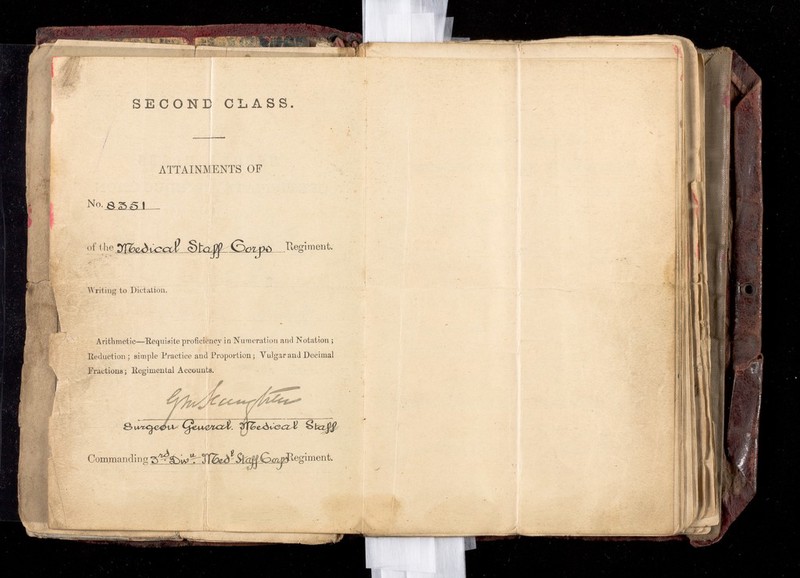 SECOND CLASS.
ATTAINMENTS OF
No. 8351
of the Medical Staff Corps Regiment.
Writing to Dictation.
Arithmetic—Requisite proficiency in Numeration and Notation ;
Reduction ; simple Practice and Proportion ; Vulgar and Decimal
Fractions ; Regimental Accounts.
Surgeon General. Medical Staff
Commanding 3rd Divn. Medl Staff Corps Regiment.